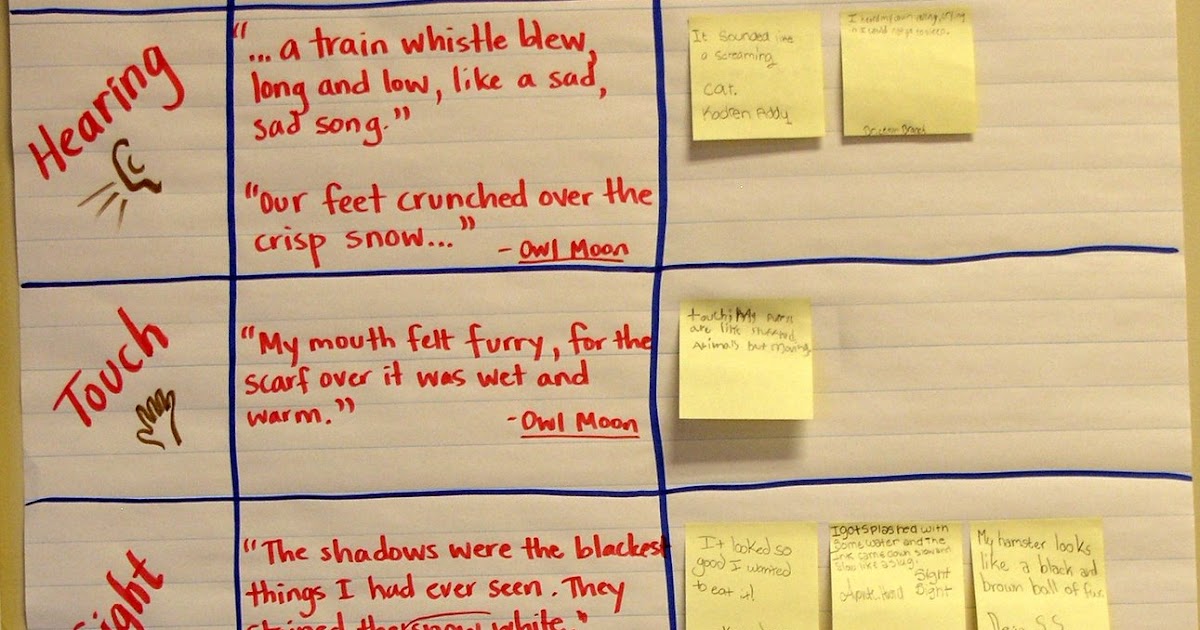 Hearing
"... a train whistle blew,
long and low, like a sad,
sad song."
"Our feet crunched over the
crisp snow..."
- Owl Moon
It sounded like
a screaming
cat.
Touch
"My mouth felt furry, for the
scarf over it was wet and
warm."
- Owl Moon
touch: My
are like stuffed
animals but moving
Sight
"The shadows were the blackest
things I had ever seen. They
stained the snow white."
It looked so
good I wanted
to eat it!
I got splashed with
some water and the
ink came down slow and
slow like a slug.
Sight
Sight
My hamster looks
like a black and
brown ball of fur.